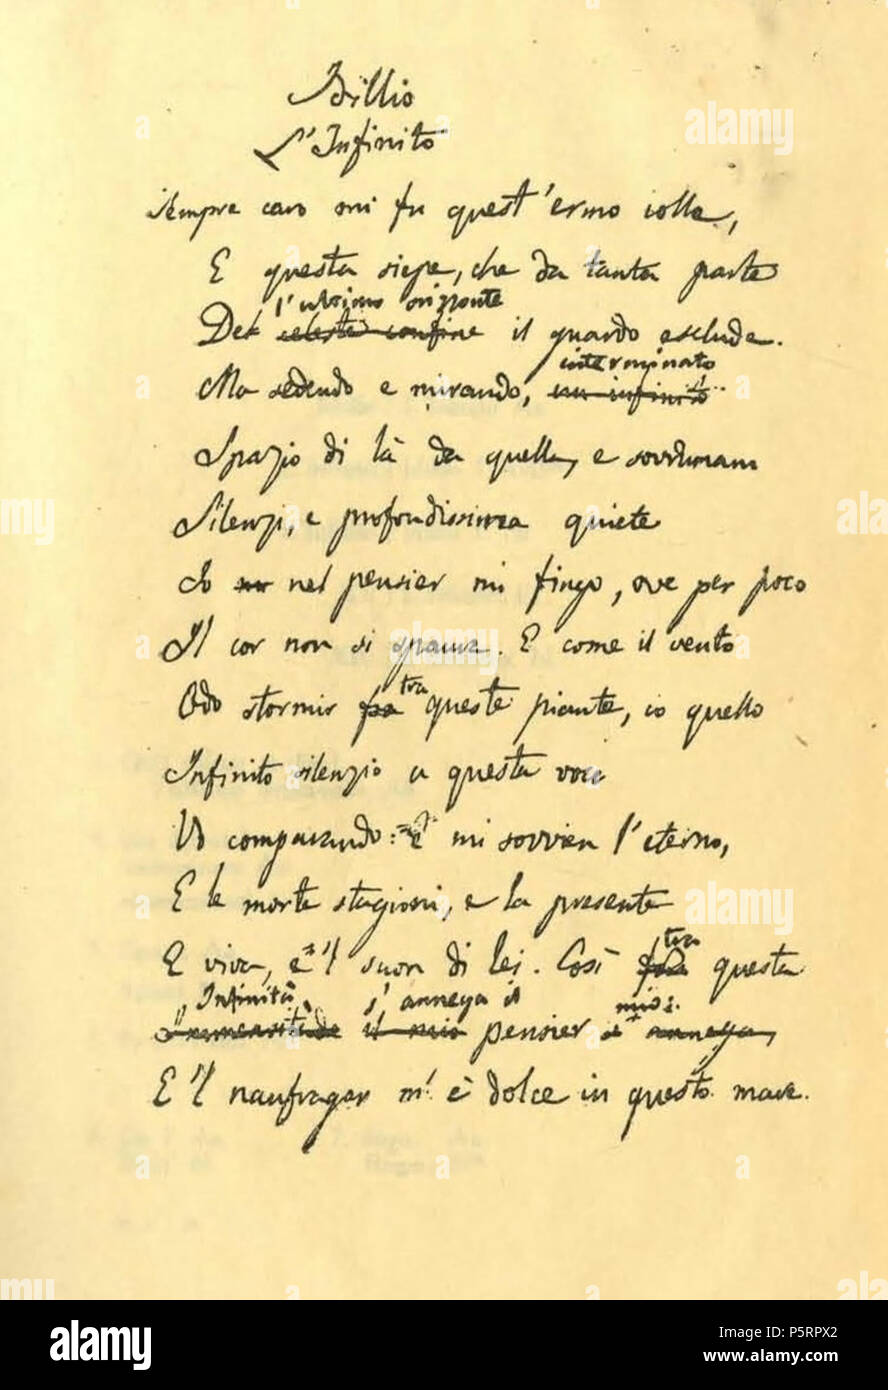 Idillio
L'Infinito
Sempre caro mi fu quest'ermo colle,
E questa siepe, che da tanta parte
l'ultimo orizzonte
Del celeste confine il guardo esclude.
interminato
Ma sedendo e mirando, un infinito
Spazio di là da quella, e sovrumani
Silenzi, e profondissima quiete
Io nel pensier mi fingo, ove per poco
Il cor non si spaura. E come il vento
tra
Odo stormir fra queste piante, io quello
Infinito silenzio a questa voce
Vo comparando: e mi sovvien l'eterno,
E le morte stagioni, e la presente
tra
E viva, e 'l suon di lei. Così fra questa
Infinità s'annega il mio:
Immensità il mio pensier s'annega,
E 'l naufragar m'è dolce in questo mare.
alamy
Image ID: P5RPX2
www.alamy.com